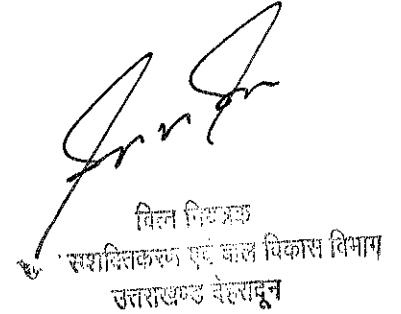 वित्त नियंत्रक
सशक्तिकरण एवं बाल विकास विभाग
उत्तराखण्ड देहरादून